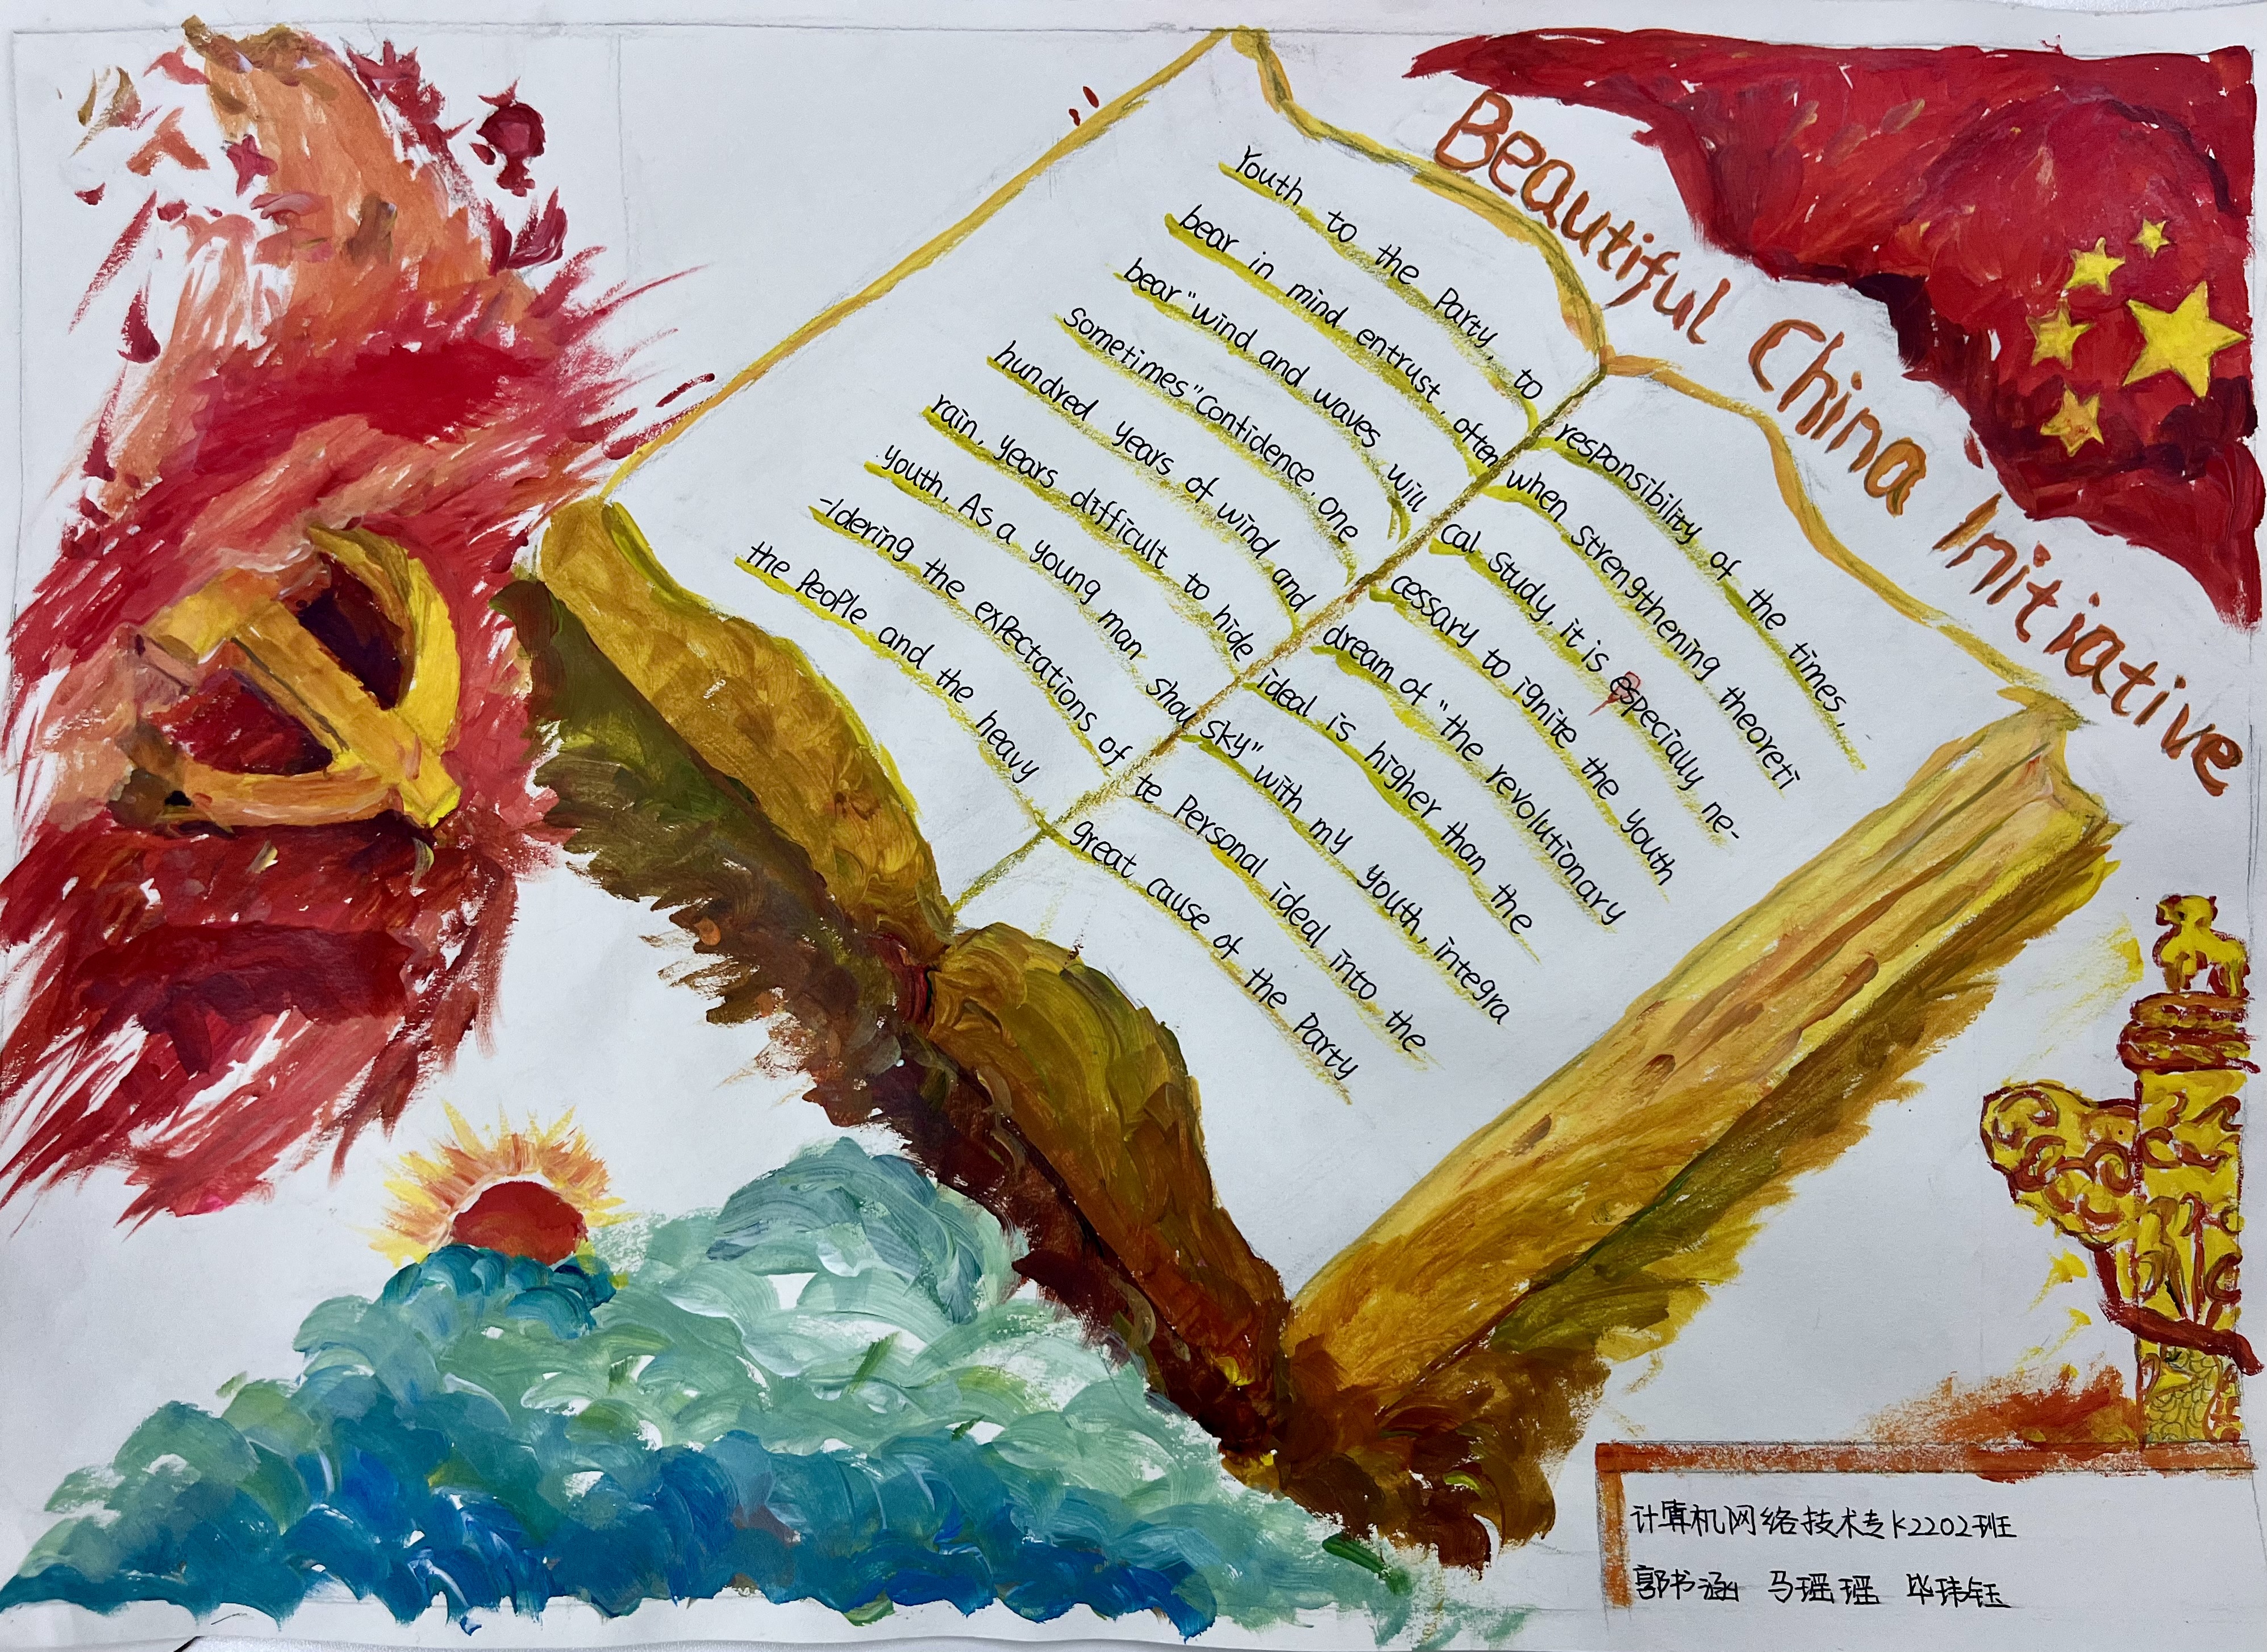 Beautiful China Initiative
Youth to the Party, to
bear in mind entrust, often
bear "wind and waves will
sometimes" Contidence, one
hundred years of wind and
rain, years difficult to hide
youth. As a young man shou
-ldering the expectations of
the People and the heavy
responsibility of the times,
when strengthening theoreti
cal study, it is especially ne-
cessary to ignite the youth
dream of "the revolutionary
ideal is higher than the
sky" with my youth, integra
te Personal ideal into the
great cause of the Party
计算机网络技术专K2202班
郭书涵 马瑶瑶 毕玮钰